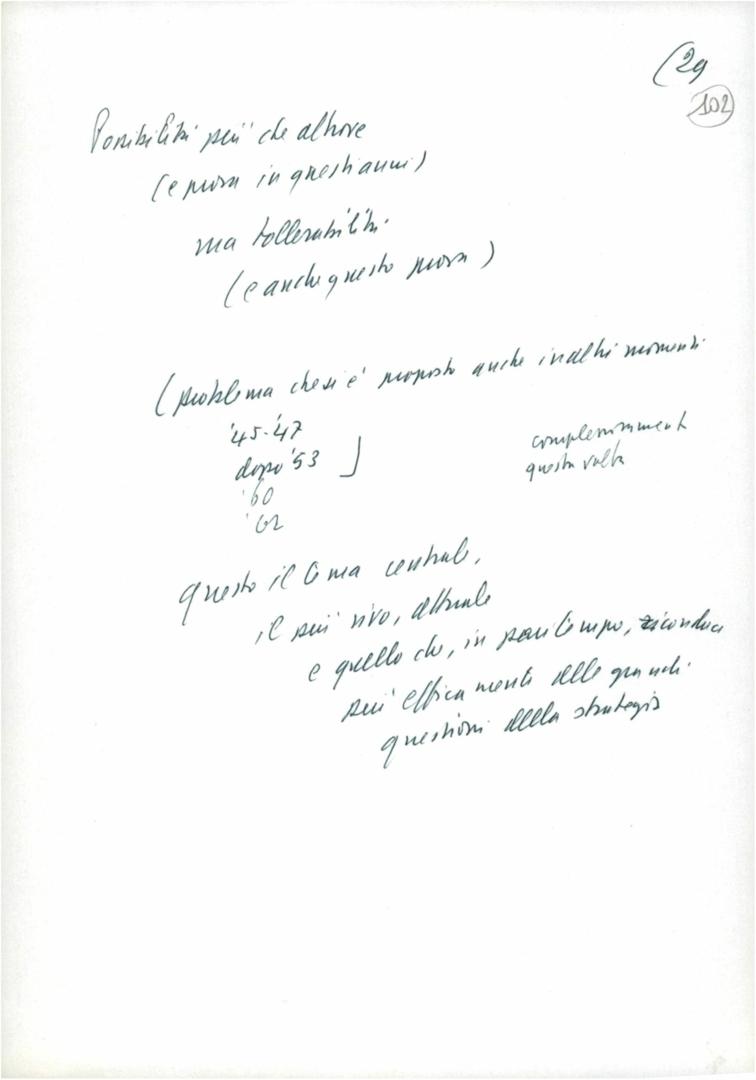 (29
102
Possibilità più che altrove
(e prova in questi anni)
ma tollerabilità.
(e anche questo prova)
(problema che si è proposto anche in altri momenti
'45-'47
dopo '53
'60
'62
complessivamente
questa volta
Questo il tema centrale,
il più vivo, attuale
e quello che, in pari tempo, riconduce
più efficacemente alle grandi
questioni della strategia